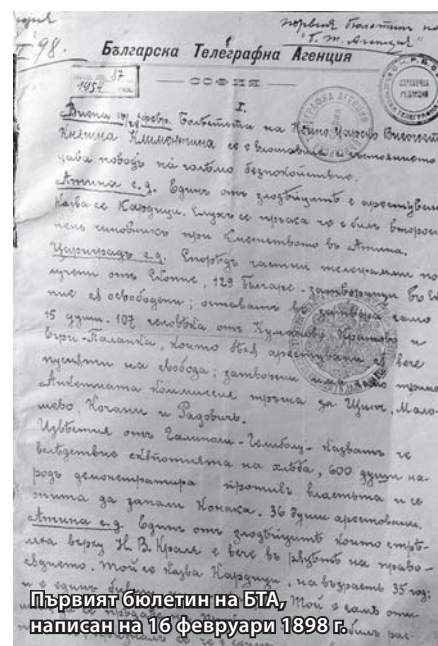 първия бюлетин на
"Б. Т. Агенция"
98.
Българска Телеграфна Агенция
87
1954
СОФИЯ
I.
Виена февр. Болестьта на Нейно Царско Височест
Княгиня Клементина се е влошила
цава поводъ на голѣмо безпокойствие.
Атина с.д. Единъ отъ злодѣйцитѣ е арестуванъ
Казва се Кардици. Слухъ се пръска че е билъ второс
пенъ чиновникъ при Кметството въ Атина.
Цариградъ с.д. Споредъ частни телеграмми по
лучени отъ Скопие, 129 българе-затворници въ Ско
пие сѫ освободени; оставатъ въ затвора само
15 души. 107 человѣка отъ Куманово, Кратово и
Паланка, които бѣха арестувани сѫ вече
пуснати на свобода; затворени има само
Анкетната Коммисия тръгна за Щипъ, Мало
шево, Кочани и Радовичъ.
Известия отъ Галиполи-Гелиболъ казватъ че
вследствие скѫпотията на хлѣба, 600 души на
родъ демонстрирали противъ властьта и се
опита да запали Конака. 36 души арестовани.
Атина с.д. Единъ отъ злодѣйцитѣ които стрѣ
ляха върху Н. В. Краля е вече въ рѫцетѣ на право
сѫдието. Той се казва Кардици, на възрастъ 35 год.
и е единъ Той е самъ
Първият бюлетин на БТА,
написан на 16 февруари 1898 г.